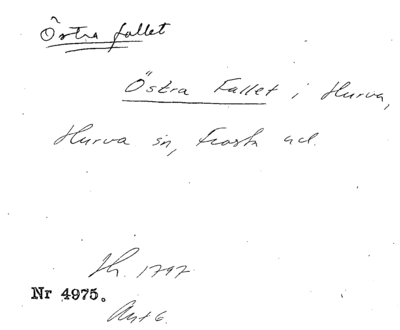 Östra fallet
Östra Fallet i Hurva,
Hurva sn, Frosta hd.
Lh. 1797
Nr 4975.
Akt 6